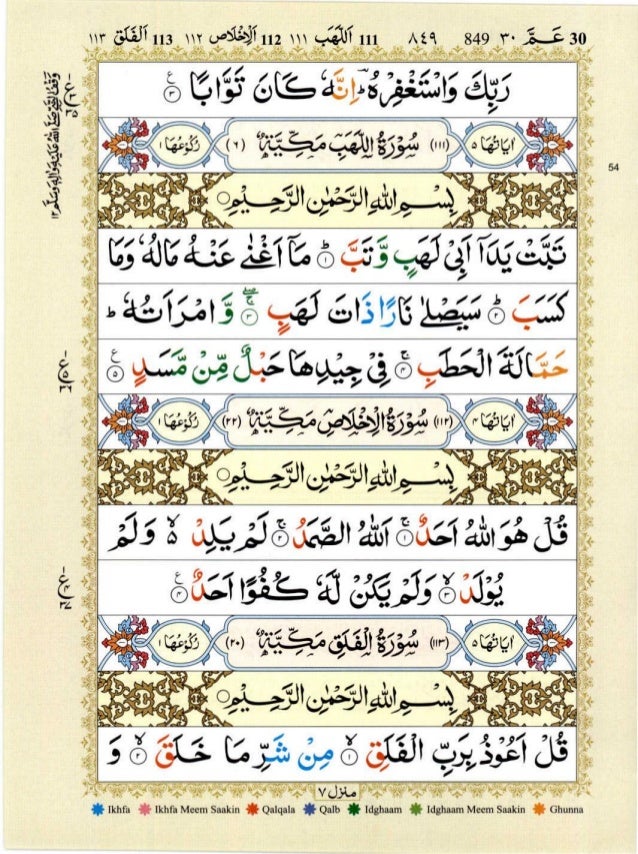 30 عَمَّ ٣٠ 849 ٨٤٩ 111 اَللَّهَب ١١١ 112 اَلْاِخْلَاص ١١٢ 113 اَلْفَلَق ١١٣
رَبِّكَ وَاسْتَغْفِرْهُ ؕ اِنَّهٗ كَانَ تَوَّابًا ۝٣
اٰیَاتُهَا ٥ (١١١) سُوْرَةُ اللَّهَبِ مَكِّیَّةٌ (٦) رُكُوْعُهَا ١
بِسْمِ اللّٰهِ الرَّحْمٰنِ الرَّحِیْمِ
تَبَّتْ یَدَاۤ اَبِیْ لَهَبٍ وَّتَبَّ ؕ۝١ مَاۤ اَغْنٰی عَنْهُ مَالُهٗ وَمَا
كَسَبَ ؕ۝٢ سَیَصْلٰی نَارًا ذَاتَ لَهَبٍ ۝٣ۚۖ وَّ امْرَاَتُهٗ ؕ
حَمَّالَةَ الْحَطَبِ ۝٤ۚ فِیْ جِیْدِهَا حَبْلٌ مِّنْ مَّسَدٍ ۝٥
اٰیَاتُهَا ٤ (١١٢) سُوْرَةُ الْاِخْلَاصِ مَكِّیَّةٌ (٢٢) رُكُوْعُهَا ١
بِسْمِ اللّٰهِ الرَّحْمٰنِ الرَّحِیْمِ
قُلْ هُوَ اللّٰهُ اَحَدٌ ۝١ۚ اَللّٰهُ الصَّمَدُ ۝٢ۚ لَمْ یَلِدْ ۙ۬ وَلَمْ
یُوْلَدْ ۙ۝٣ وَلَمْ یَكُنْ لَّهٗ كُفُوًا اَحَدٌ ۝٤
اٰیَاتُهَا ٥ (١١٣) سُوْرَةُ الْفَلَقِ مَكِّیَّةٌ (٢٠) رُكُوْعُهَا ١
بِسْمِ اللّٰهِ الرَّحْمٰنِ الرَّحِیْمِ
قُلْ اَعُوْذُ بِرَبِّ الْفَلَقِ ۙ۝١ مِنْ شَرِّ مَا خَلَقَ ۙ۝٢ وَ
منزل ٧
Ikhfa Ikhfa Meem Saakin Qalqala Qalb Idghaam Idghaam Meem Saakin Ghunna
54